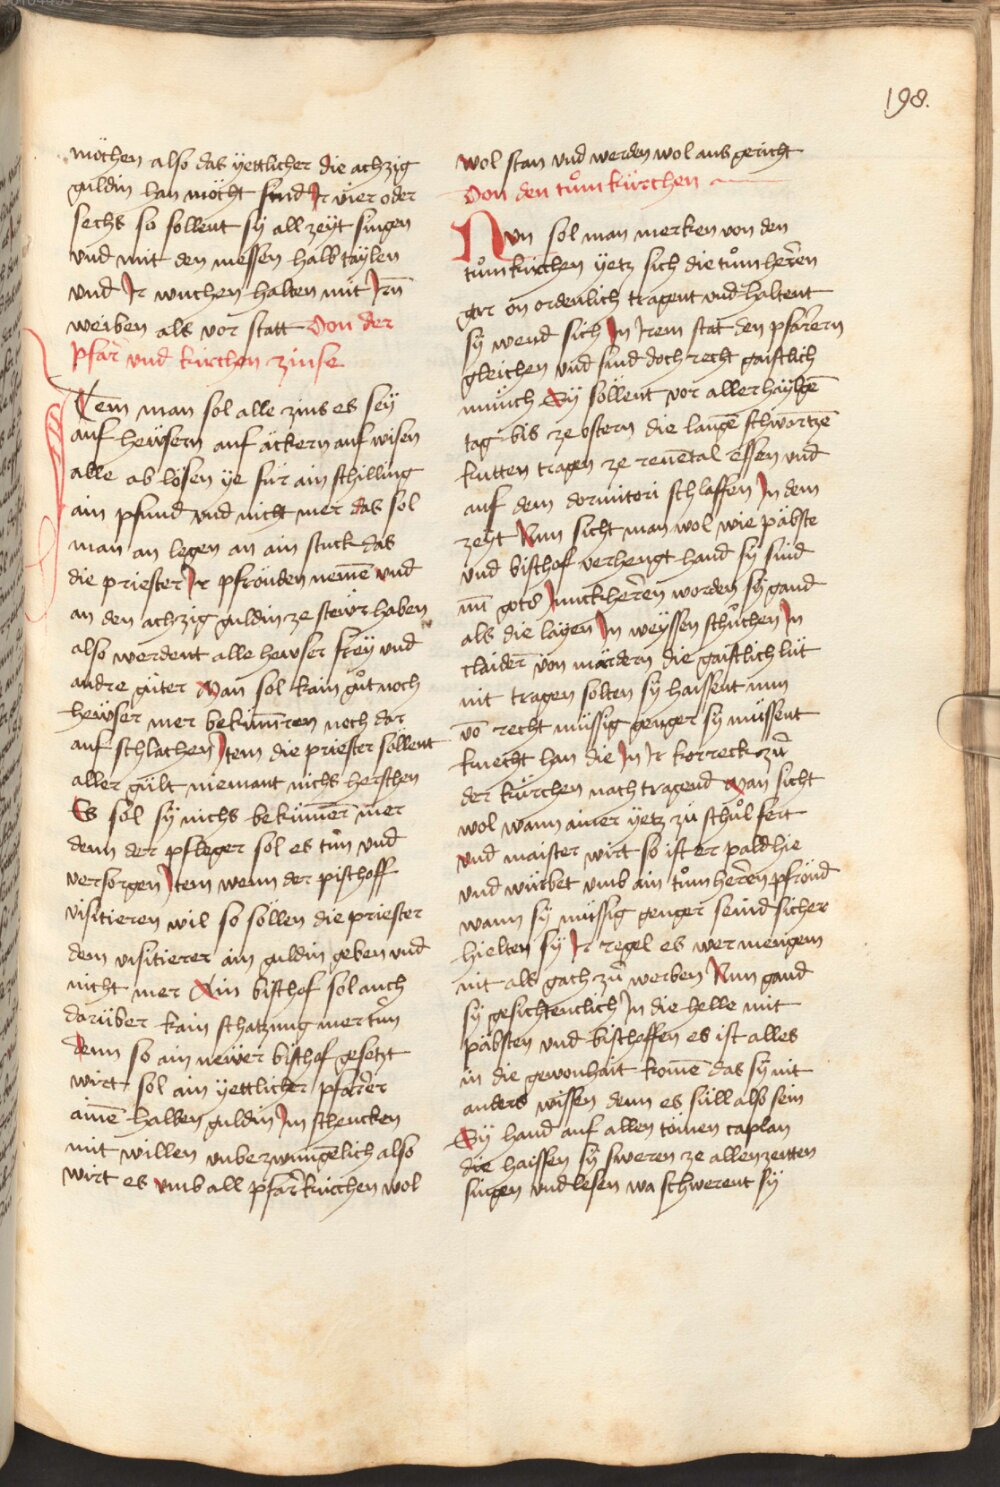 198.
möchen also das yettlicher die achzig
guldin han möcht sind Jr vier oder
sechs so sollent sy all zeyt singen
vnd mit den messen halb taylen
vnd Jr wuchen halten mit Jrn̄
weiben als vor statt Von der
pfarr̄ vnd kürchen zinse
Item̄ man sol alle zins es sey
auf hewsern auf äckern auf wisen
alle ab lösen ye für ain schilling
ain pfund vnd nicht mer das sol
man an legen an ain stuck das
die priester Jr pfrönden nem̄e vnd
an den achzig guldin ze stewr haben
also werdent alle hewser frey vnd
andre güter Man sol kain gůt noch
hewser mer bekümren noch dar
auf schlachen Jtem die priester söllent
aller gült niemant nichs herschen
Es sol sy nichs beküm̄er̄ mer
denn der pfleger sol es tůn vnd
versorgen Jtem wenn der pischoff
visitieren wil so söllen die priester
dem visitierer ain guldin geben vnd
nicht mer Ain bischof sol auch
darüber kain schatzung mer tůn
denn so ain newer bischof gesetzt
wirt sol ain yettlicher pfarrer
ainē halben guldin Jm schencken
mit willen vnbezwungēlich also
wirt es vmb all pfarr̄kirchen wol
wol stan vnd werden wol aus gericht
Von den tům kürchen
Nvn sol man merken von den
tům kirchen yetz sich die tům herēn
gar on ordenlich tragent vnd haltent
sy wend sich Jn Jrem stat den pfarrern
gleichen vnd sind doch recht gaistlich
münch Sy söllent vor aller haylgē
tag bis ze ostern die langē schwartzē
kutten tragen ze reuētal essen vnd
auf dem dormitori schlaffen Jn dem
zeyt Nun sicht man wol wie päbste
vnd bischof verhengt hand sy sind
nū gots Junckherēn worden sy gand
als die layen Jn weyssen schůchen Jn
claider̄ von mardern die gaistlich lüt
nit tragen solten sy haissent nun
vō recht müssig genger sy müssent
knecht han die Jn Jr korreck zů
der kürchen nach tragend Man sicht
wol wann ainer yetz zů schůl fert
vnd maister wirt so ist er pald hie
vnd würbet vmb ain tům herēn pfrönd
wann sy müssig genger seind sicher
hielten sy Jr regel es wer mengem
nit als gach zů werben Nun gand
sy gesichtenclich Jn die helle mit
päbsten vnd bischoffen es ist alles
in die gewonhait komē das sy nit
anders wissen denn es süll also sein
Sy hand auf allen tömen caplan
die haissen sy sweren ze allen zeitten
singen vnd lesen wa schwerent sy